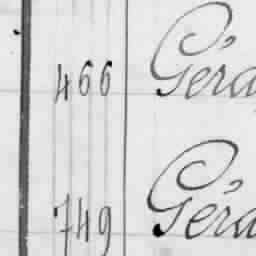 466 Géra
749 Géra